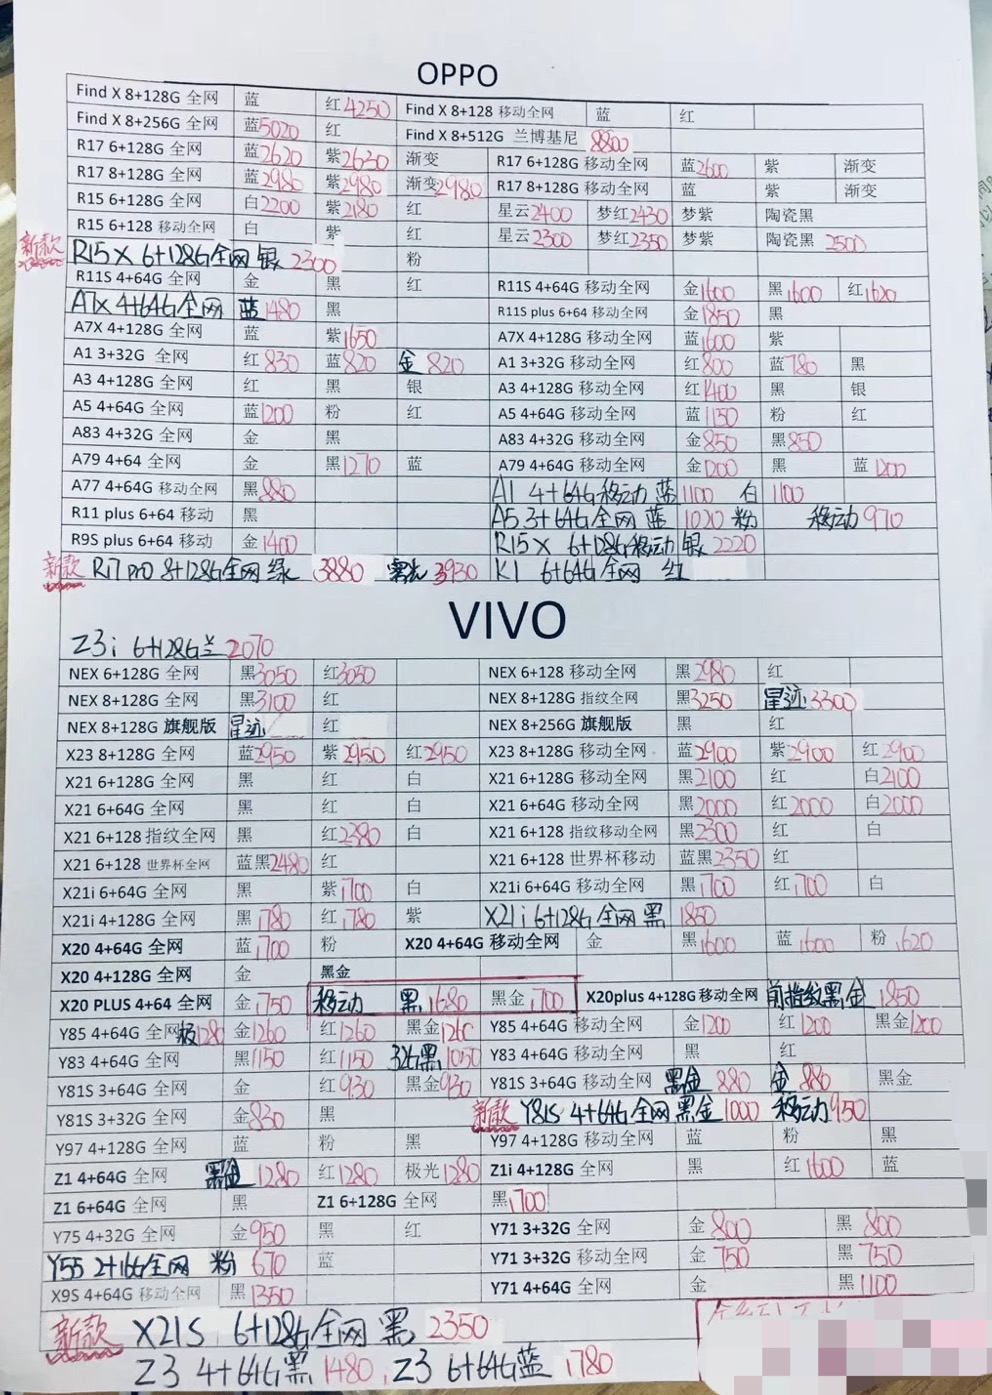 OPPO
Find X 8+128G 全网 蓝 红4250 Find X 8+128 移动全网 蓝 红
Find X 8+256G 全网 蓝5020 红 Find X 8+512G 兰博基尼 8800
R17 6+128G 全网 蓝2620 紫2630 渐变 R17 6+128G 移动全网 蓝2600 紫 渐变
R17 8+128G 全网 蓝2980 紫2980 渐变2980 R17 8+128G 移动全网 蓝 紫 渐变
R15 6+128G 全网 白2200 紫2180 红 星云2400 梦红2430 梦紫 陶瓷黑
R15 6+128 移动全网 白 紫 红 星云2300 梦红2350 梦紫 陶瓷黑 2500
新款 R15X 6+128G全网 银 2300 粉
R11S 4+64G 全网 金 黑 红 R11S 4+64G 移动全网 金1600 黑1600 红1620
A7X 4+64G全网 蓝1480 黑 R11S plus 6+64 移动全网 金1850 黑
A7X 4+128G 全网 蓝 紫1650 A7X 4+128G 移动全网 蓝1600 紫
A1 3+32G 全网 红830 蓝820 金820 A1 3+32G 移动全网 红800 蓝780 黑
A3 4+128G 全网 红 黑 银 A3 4+128G 移动全网 红1400 黑 银
A5 4+64G 全网 蓝1200 粉 红 A5 4+64G 移动全网 蓝1130 粉 红
A83 4+32G 全网 金 黑 A83 4+32G 移动全网 金850 黑850
A79 4+64 全网 金 黑1270 蓝 A79 4+64G 移动全网 金1200 黑 蓝1200
A77 4+64G 移动全网 黑880 A1 4+64G移动 蓝1100 白1100
R11 plus 6+64 移动 黑 A5 3+64G全网 蓝 1020 粉 移动970
R9S plus 6+64 移动 金1400 R15X 6+128G移动 银2220
新款 R17 pro 8+128G全网 绿 3880 3930 K1 6+64G全网 红
VIVO
Z3i 6+128G兰2070
NEX 6+128G 全网 黑3050 红3050 NEX 6+128 移动全网 黑2980 红
NEX 8+128G 全网 黑3100 红 NEX 8+128G 指纹全网 黑3250 星迹3300
NEX 8+128G 旗舰版 星迹 红 NEX 8+256G 旗舰版 黑 红
X23 8+128G 全网 蓝2950 紫2950 红2950 X23 8+128G 移动全网 蓝2900 紫2900 红2900
X21 6+128G 全网 黑 红 白 X21 6+128G 移动全网 黑2100 红 白2100
X21 6+64G 全网 黑 红 白 X21 6+64G 移动全网 黑2000 红2000 白2000
X21 6+128 指纹全网 黑 红2380 白 X21 6+128 指纹移动全网 黑2300 红 白
X21 6+128 世界杯全网 蓝黑2480 红 X21 6+128 世界杯移动 蓝黑2350 红
X21i 6+64G 全网 黑 紫1700 白 X21i 6+64G 移动全网 黑1700 红1700 白
X21i 4+128G 全网 黑1780 红1780 紫 X21i 6+128G全网 黑 1850
X20 4+64G 全网 蓝1700 粉 X20 4+64G 移动全网 金 黑1600 蓝1600 粉1620
X20 4+128G 全网 金 黑金
X20 PLUS 4+64 全网 金1750 移动 黑1680 黑金1700 X20plus 4+128G移动全网 前指纹黑金 1850
Y85 4+64G 全网 板1280 金1260 红1260 黑金1260 Y85 4+64G 移动全网 金1200 红1200 黑金1200
Y83 4+64G 全网 黑1150 红1150 32G黑1050 Y83 4+64G 移动全网 黑 红
Y81S 3+64G 全网 金 红930 黑金930 Y81S 3+64G 移动全网 黑金880 金880 黑金
Y81S 3+32G 全网 金830 黑 新款 Y81S 4+64G全网 黑金1000 移动950
Y97 4+128G 全网 蓝 粉 黑 Y97 4+128G 移动全网 蓝 粉 黑
Z1 4+64G 全网 黑金1280 红1280 极光1280 Z1i 4+128G 全网 黑 红1600 蓝
Z1 6+64G 全网 黑 Z1 6+128G 全网 黑1700
Y75 4+32G 全网 金950 黑 红 Y71 3+32G 全网 金800 黑800
Y55 2+16G全网 粉 670 蓝 Y71 3+32G 移动全网 金750 黑750
X9S 4+64G 移动全网 黑1350 Y71 4+64G 全网 金 黑1100
新款 X21S 6+128G全网 黑 2350
Z3 4+64G黑1480, Z3 6+64G蓝 1780